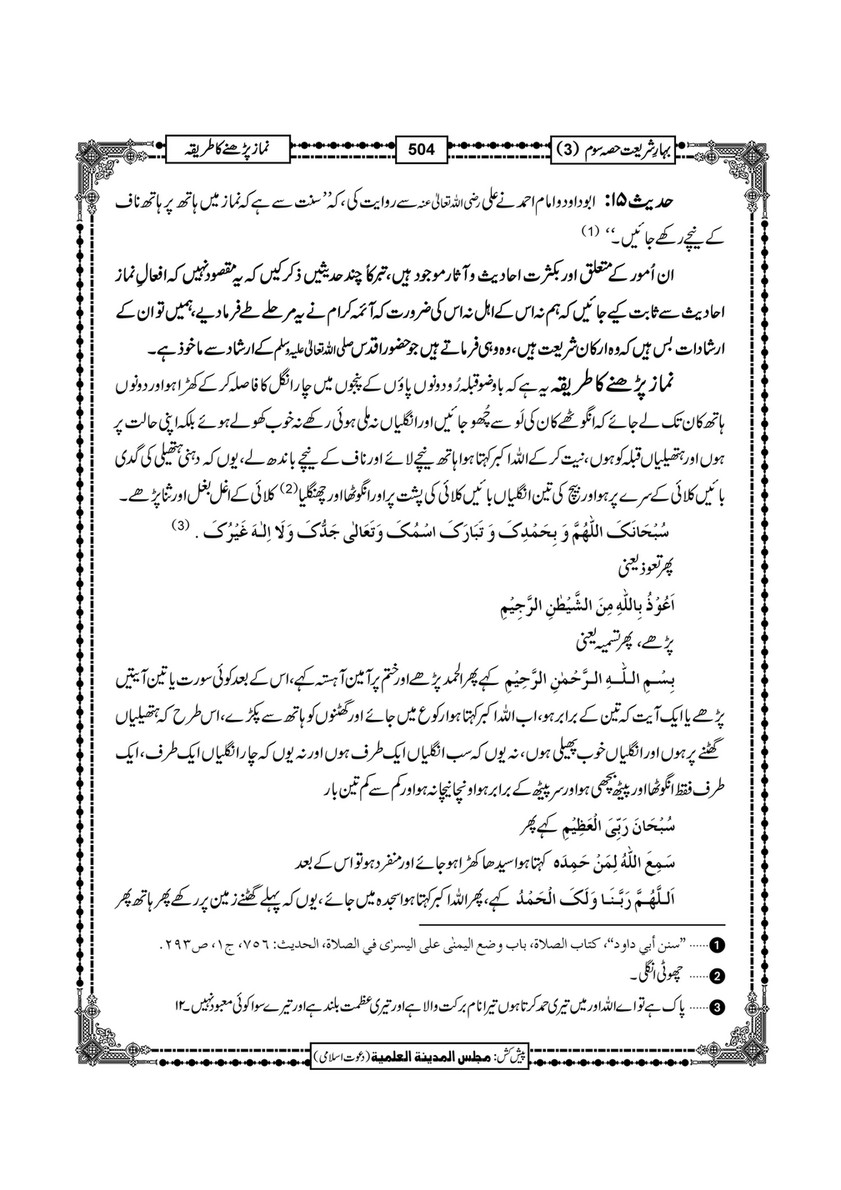 بہارِ شریعت حصہ سوم (3)
504
نماز پڑھنے کا طریقہ
حدیث ۱۵: ابو داود و امام احمد نے علی رضی اللہ تعالیٰ عنہ سے روایت کی، کہ ’’سنت سے ہے کہ نماز میں ہاتھ پر ہاتھ ناف
کے نیچے رکھے جائیں۔‘‘ (1)
ان اُمور کے متعلق اور بکثرت احادیث و آثار موجود ہیں، تبرکاً چند حدیثیں ذکر کیں کہ یہ مقصود نہیں کہ افعالِ نماز
احادیث سے ثابت کیے جائیں کہ ہم نہ اس کے اہل نہ اس کی ضرورت کہ آئمہ کرام نے یہ مرحلے طے فرما دیے، ہمیں تو ان کے
ارشادات بس ہیں کہ وہ ارکان شریعت ہیں، وہ وہی فرماتے ہیں جو حضور اقدس صلی اللہ تعالیٰ علیہ وسلم کے ارشاد سے ماخوذ ہے۔
نماز پڑھنے کا طریقہ یہ ہے کہ باوضو قبلہ رُو دونوں پاؤں کے پنجوں میں چار انگل کا فاصلہ کر کے کھڑا ہو اور دونوں
ہاتھ کان تک لے جائے کہ انگوٹھے کان کی لَو سے چُھو جائیں اور انگلیاں نہ ملی ہوئی رکھے نہ خوب کھولے ہوئے بلکہ اپنی حالت پر
ہوں اور ہتھیلیاں قبلہ کو ہوں، نیت کر کے اللہ اکبر کہتا ہوا ہاتھ نیچے لائے اور ناف کے نیچے باندھ لے، یوں کہ دہنی ہتھیلی کی گدی
بائیں کلائی کے سرے پر ہو اور بیچ کی تین انگلیاں بائیں کلائی کی پشت پر اور انگوٹھا اور چھنگلیا (2) کلائی کے اغل بغل اور ثنا پڑھے۔
سُبْحَانَکَ اللّٰھُمَّ وَ بِحَمْدِکَ وَ تَبَارَکَ اسْمُکَ وَتَعَالٰی جَدُّکَ وَلَا اِلٰـہَ غَیْرُکَ . (3)
پھر تعوذ یعنی
اَعُوْذُ بِاللّٰہِ مِنَ الشَّیْطٰنِ الرَّجِیْمِ
پڑھے، پھر تسمیہ یعنی
بِسْمِ اللّٰـہِ الرَّحْمٰنِ الرَّحِیْمِ کہے پھر الحمد پڑھے اور ختم پر آمین آہستہ کہے، اس کے بعد کوئی سورت یا تین آیتیں
پڑھے یا ایک آیت کہ تین کے برابر ہو، اب اللہ اکبر کہتا ہوا رکوع میں جائے اور گھٹنوں کو ہاتھ سے پکڑے، اس طرح کہ ہتھیلیاں
گھٹنے پر ہوں اور انگلیاں خوب پھیلی ہوں، نہ یوں کہ سب انگلیاں ایک طرف ہوں اور نہ یوں کہ چار انگلیاں ایک طرف، ایک
طرف فقط انگوٹھا اور پیٹھ بچھی ہو اور سر پیٹھ کے برابر ہو اونچا نیچا نہ ہو اور کم سے کم تین بار
سُبْحَانَ رَبِّیَ الْعَظِیْمِ کہے پھر
سَمِعَ اللّٰہُ لِمَنْ حَمِدَہ کہتا ہوا سیدھا کھڑا ہو جائے اور منفرد ہو تو اس کے بعد
اَللّٰھُمَّ رَبَّـنَـا وَلَکَ الْحَمْدُ کہے، پھر اللہ اکبر کہتا ہوا سجدہ میں جائے، یوں کہ پہلے گھٹنے زمین پر رکھے پھر ہاتھ پھر
1 ...... ”سنن أبي داود“، كتاب الصلاة، باب وضع اليمنٰى على اليسرٰى في الصلاة، الحديث: ٧٥٦، ج١، ص٢٩٣.
2 ...... چھوٹی انگلی۔
3 ...... پاک ہے تو اے اللہ اور میں تیری حمد کرتا ہوں تیرا نام برکت والا ہے اور تیری عظمت بلند ہے اور تیرے سوا کوئی معبود نہیں۔ ۱۲
پیش کش: مجلس المدینۃ العلمیۃ (دعوت اسلامی)